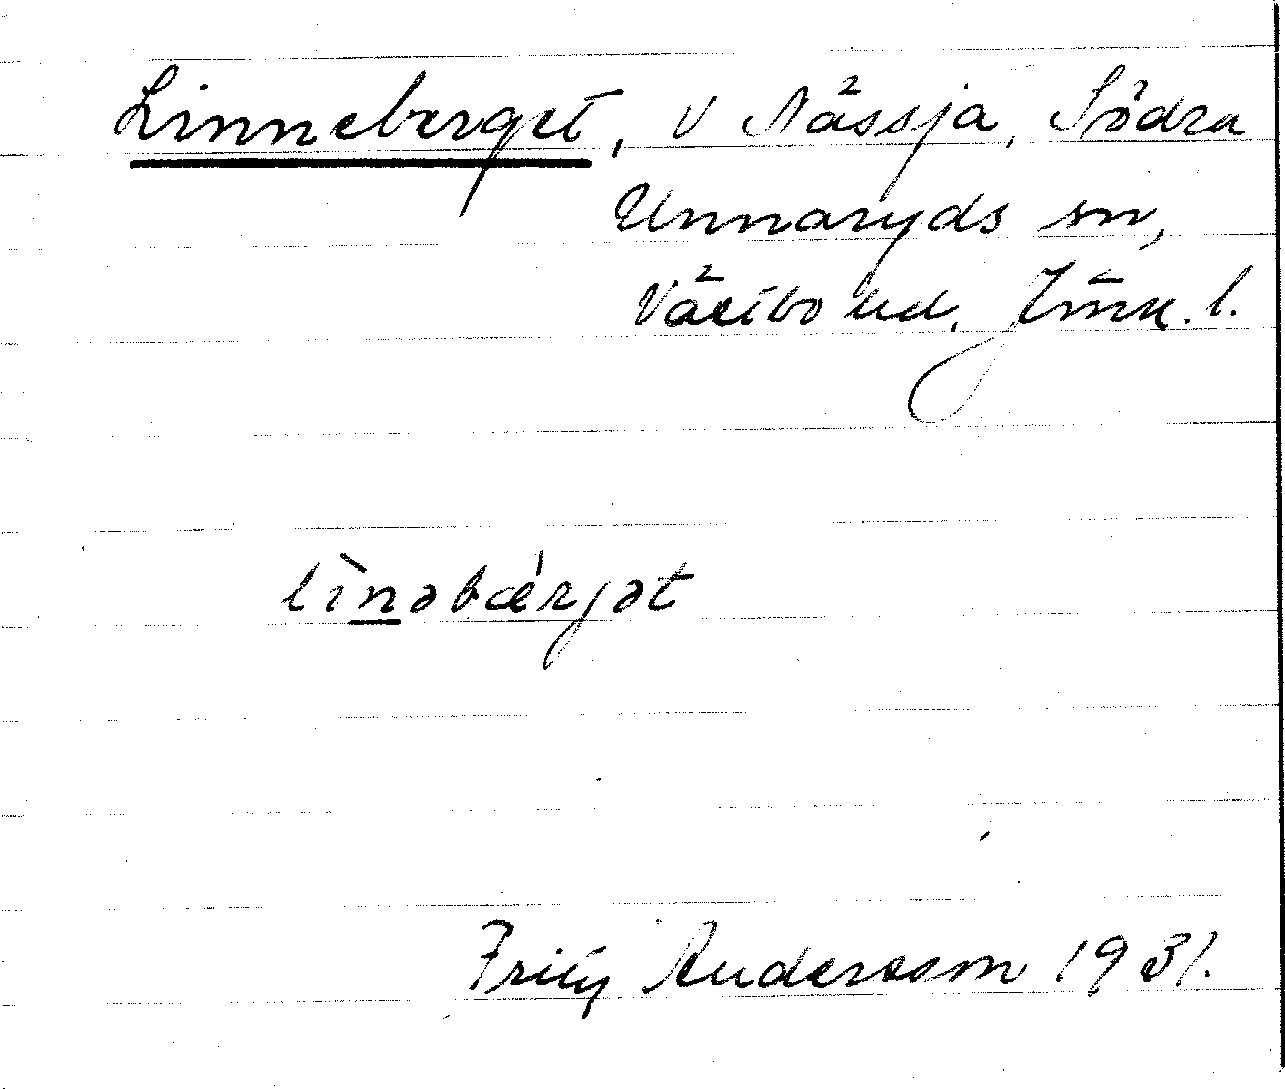 Linneberget, v Nässja, Södra
Unnaryds sn,
Västbo hd. Jönk. l.
lìnəbǽrjət
Fritz Andersson 1931.